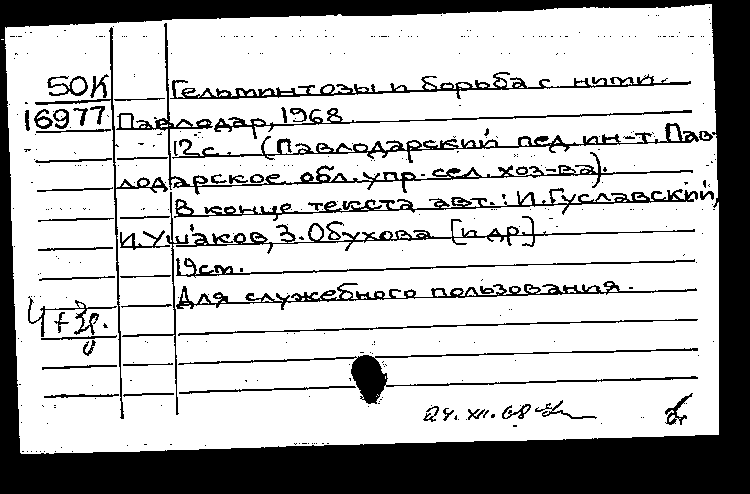 50К Гельминтозы и борьба с ними.
16977 Павлодар, 1968
12с. (Павлодарский пед. ин-т. Пав-
лодарское обл. упр. сел. хоз-ва).
В конце текста авт.: И. Гуславский,
И. Ушаков, З. Обухова [и др.]
19см.
Для служебного пользования.
24.XII.68